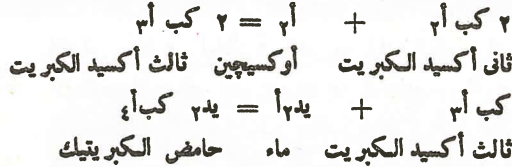 ٢ كب أ٢ + أ٢ = ٢ كب أ٣
ثانى أكسيد الكبريت أوكسيچين ثالث أكسيد الكبريت
كب أ٣ + يد٢أ = يد٢ كب أ٤
ثالث أكسيد الكبريت ماء حامض الكبريتيك